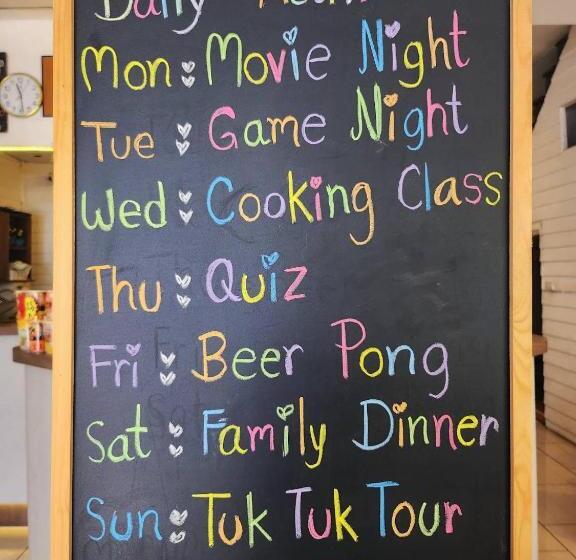 Daily
Mon: Movie Night
Tue: Game Night
Wed: Cooking Class
Thu: Quiz
Fri: Beer Pong
Sat: Family Dinner
Sun: Tuk Tuk Tour